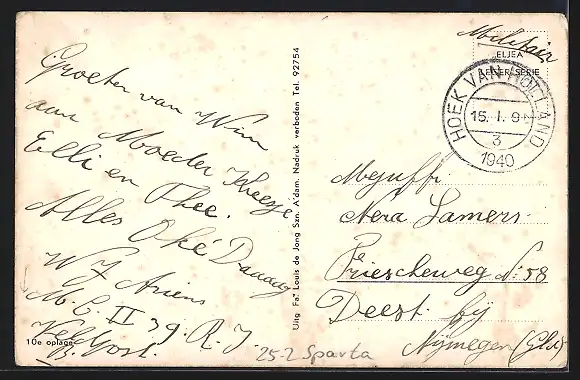 Groeten van Wim
aan Moeder Kneesje
Elli en Thee.
Alles Oké Daaag
W J Ariens
M. C. II 39. R. I.
Veldpost.
10e oplage
Uitg. Fa. Louis de Jong Szn. A'dam. Nadruk verboden Tel. 92754
Militair
ELJEA
LEDER-SERIE
HOEK VAN HOLLAND
15. I. 9
3
1940
Mejuffr.
Nera Lamers
Friescheweg No. 58
Deest bij
Nijmegen (Gld.)
25-2 Sparta